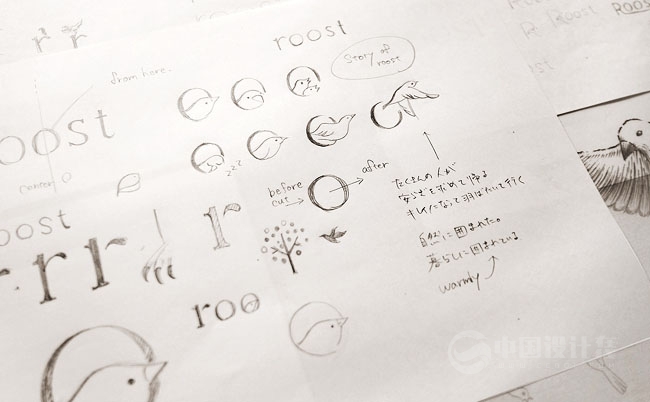 r r
Pr Roost ROOST
ost
roost
from here.
Story of
roost
roost
center
zzz
before
cut
after
たくさんの人が
安らぎを求めて帰る
キレイになって羽ばたいて行く
自然に囲まれた。
暮らしに囲まれている。
warmly
oost
r r r r
r
roo
中国设计在